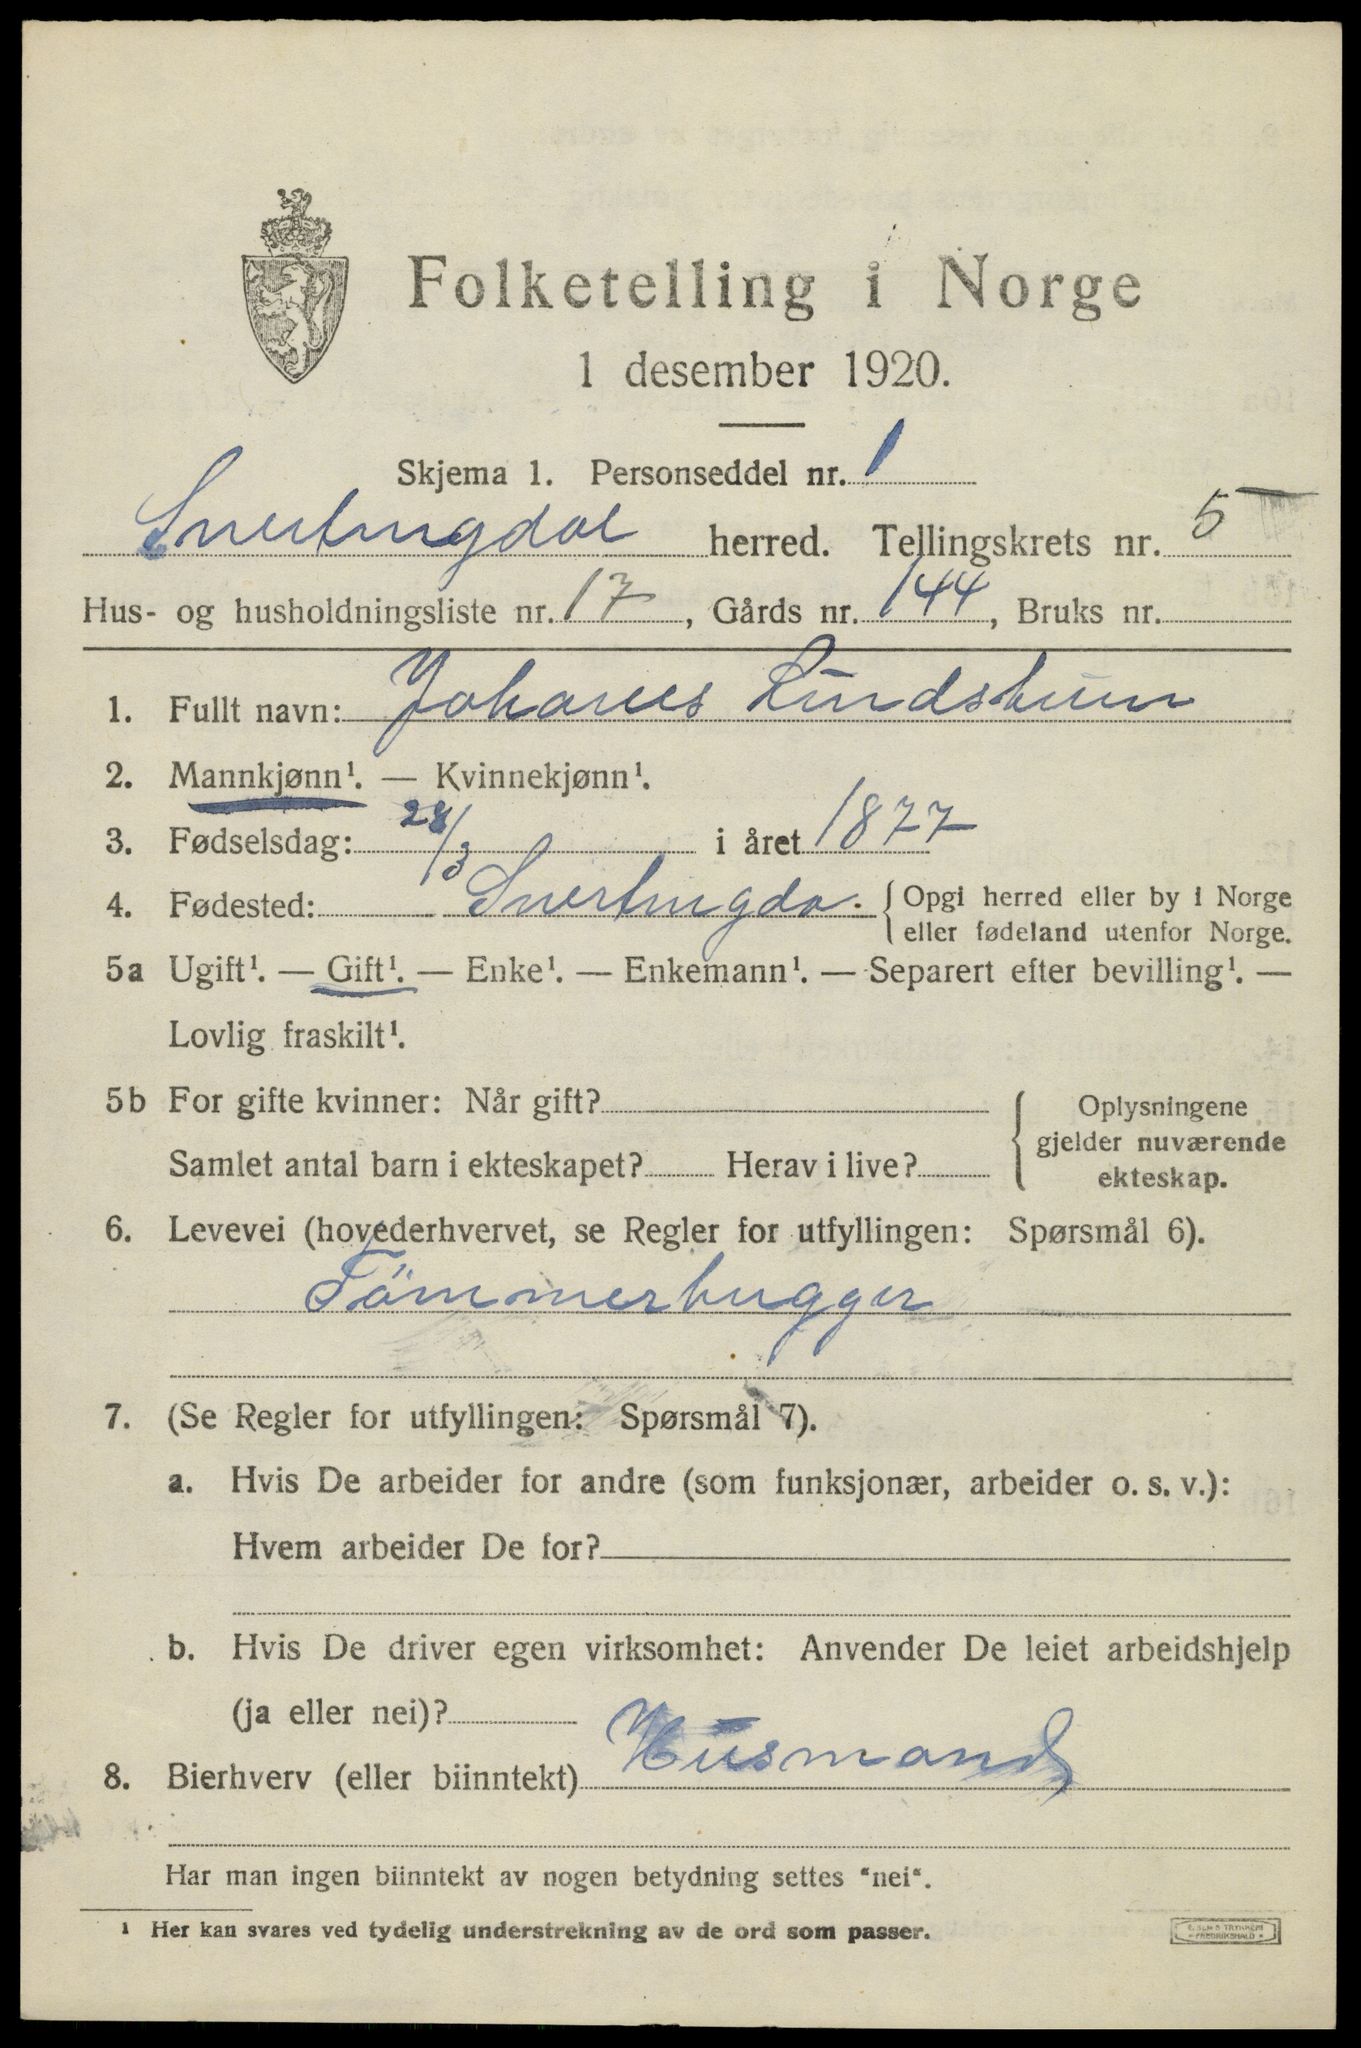 Folketelling i Norge
1 desember 1920.
Skjema 1. Personseddel nr. 1
Snertingdal herred. Tellingskrets nr. 5
Hus- og husholdningsliste nr. 17, Gårds nr. 144, Bruks nr.
1. Fullt navn: Johanes
2. Mannkjønn¹. — Kvinnekjønn¹.
3. Fødselsdag: 28/3 i året 1877
4. Fødested: Snertingda. { Opgi herred eller by i Norge
eller fødeland utenfor Norge.
5a Ugift¹. — Gift¹. — Enke¹. — Enkemann¹. — Separert efter bevilling¹. —
Lovlig fraskilt¹.
5b For gifte kvinner: Når gift?
Samlet antal barn i ekteskapet? Herav i live?
Oplysningene
gjelder nuværende
ekteskap.
6. Levevei (hovederhvervet, se Regler for utfyllingen: Spørsmål 6).
Tömmerhugger
7. (Se Regler for utfyllingen: Spørsmål 7).
a. Hvis De arbeider for andre (som funksjonær, arbeider o. s. v.):
Hvem arbeider De for?
b. Hvis De driver egen virksomhet: Anvender De leiet arbeidshjelp
(ja eller nei)?
8. Bierhverv (eller biinntekt) Husmand
Har man ingen biinntekt av nogen betydning settes "nei".
¹ Her kan svares ved tydelig understrekning av de ord som passer.